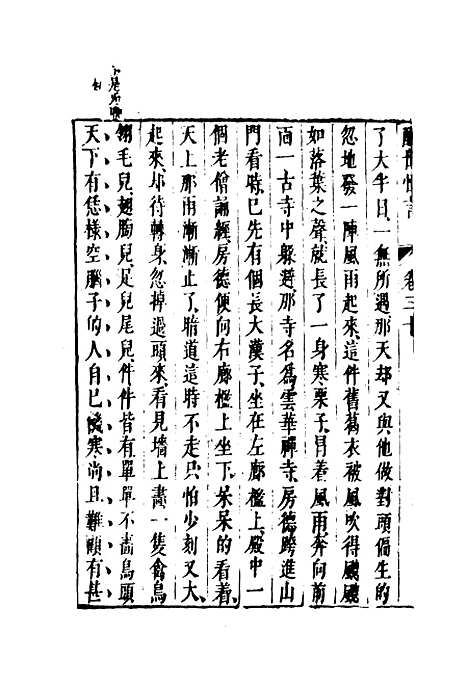 醒世恆言 卷三十
了大半日、一無所遇、那天却又與他做對頭、偏生的
忽地發一陣風雨起來、這件舊葛衣被風吹得颼颼
如落葉之聲、就長了一身寒栗子、冒着風雨、奔向前
面一古寺中躲避、那寺名爲雲華禪寺、房德跨進山
門看時、已先有個長大漢子、坐在左廊檻上、殿中一
個老僧誦經、房德便向右廊檻上坐下、呆呆的看着
天上、那雨漸漸止了、暗道這時不走、只怕少刻又大、
起來、却待轉身、忽掉過頭來、看見墻上畫一隻禽鳥
翎毛兒、翅胸兒、足兒尾兒、件件皆有、單單不畫鳥頭
天下有恁樣空腦子的人、自己饑寒尚且難顧、有甚